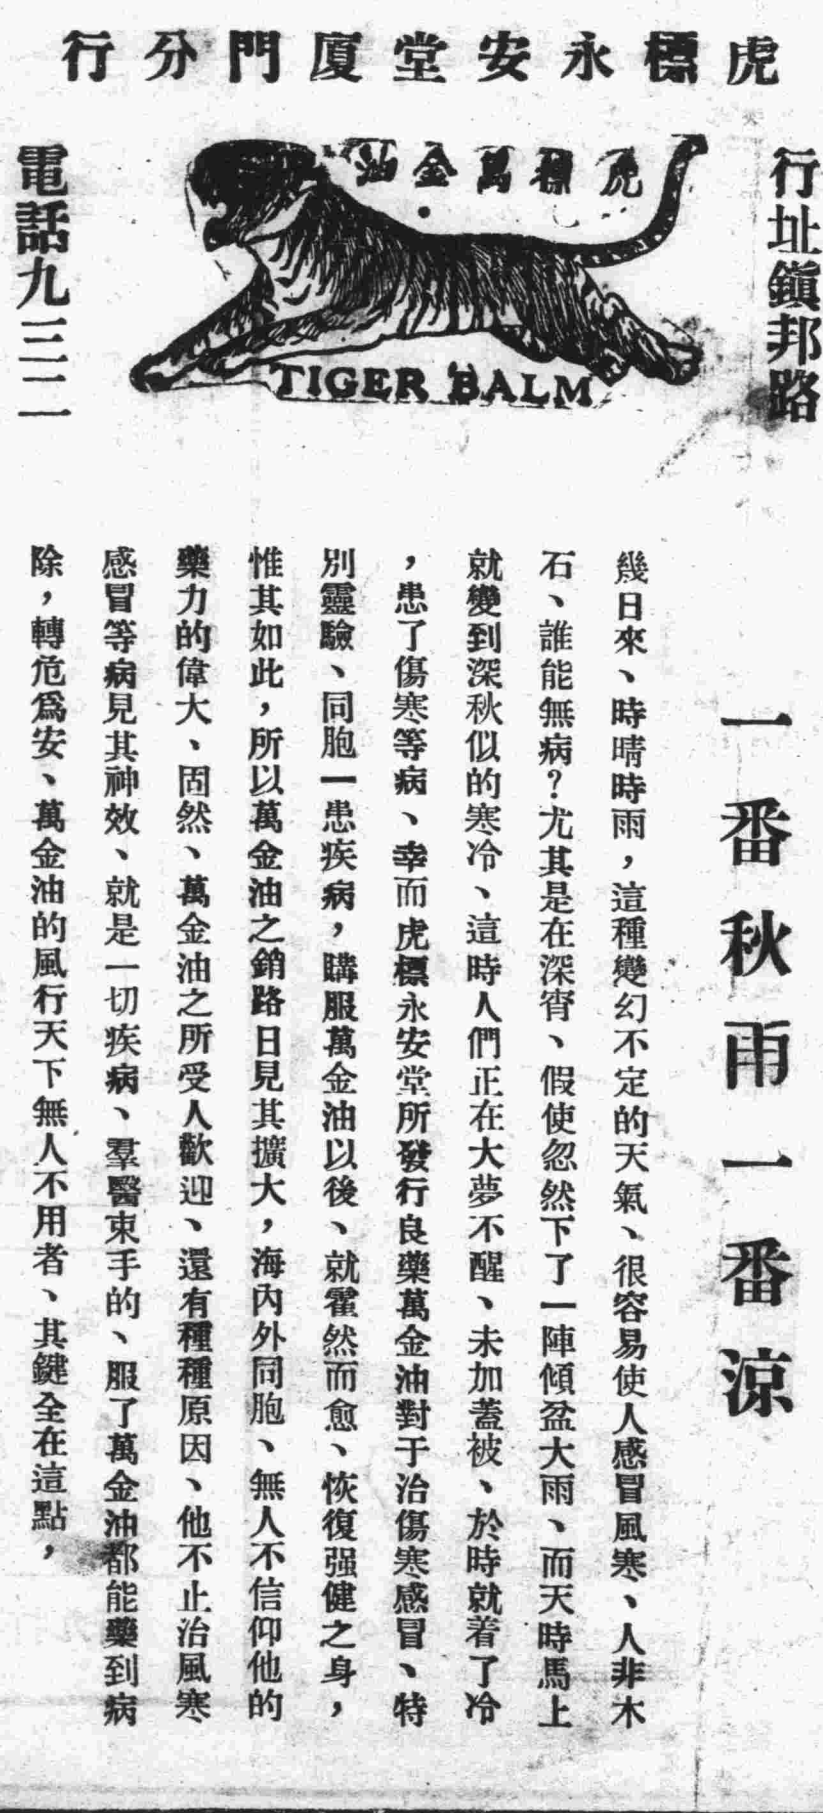 虎標永安堂厦門分行
行址鎭邦路
虎標萬金油
TIGER BALM
電話九三二
一番秋雨一番涼
幾日來、時晴時雨，這種變幻不定的天氣、很容易使人感冒風寒、人非木
石、誰能無病？尤其是在深宵、假使忽然下了一陣傾盆大雨、而天時馬上
就變到深秋似的寒冷、這時人們正在大夢不醒、未加蓋被、於時就着了冷
，患了傷寒等病、幸而虎標永安堂所發行良藥萬金油對于治傷寒感冒、特
別靈驗、同胞一患疾病，購服萬金油以後、就霍然而愈、恢復强健之身，
惟其如此，所以萬金油之銷路日見其擴大，海內外同胞、無人不信仰他的
藥力的偉大、固然、萬金油之所受人歡迎、還有種種原因、他不止治風寒
感冒等病見其神效、就是一切疾病、羣醫束手的、服了萬金油都能藥到病
除，轉危爲安、萬金油的風行天下無人不用者、其鍵全在這點，